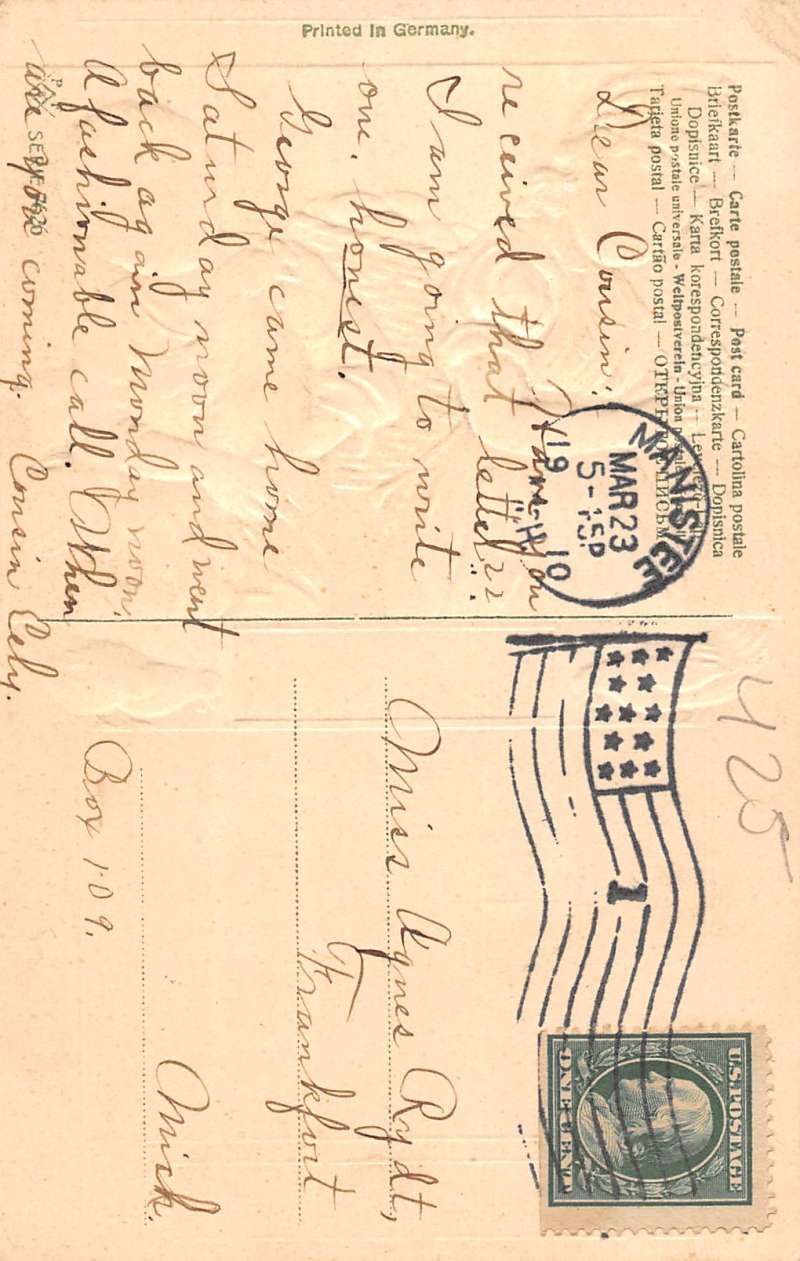 Postkarte — Carte postale — Post card — Cartolina postale
Briefkaart — Brefkort — Correspondenzkarte — Dopisnica
Dopisnice — Karta korespondencyjna —
Unione postale universale - Weltpostverein - Union
Tarjeta postal — Cartão postal — ОТКРЫТОЕ ПИСЬМО
Dear Cousin:
Have you
received that letter??
I am going to write
one. honest.
George came home
Saturday noon and went
back again Monday noon.
A fashionable call. When
are you coming.
Cousin Cely.
Printed in Germany.
SERIE
MANISTEE
MAR 23
5-15P
1910
MICH.
1
425
U.S. POSTAGE
ONE CENT
Miss Agnes Rydt,
Frankfort
Mich.
Box 109.